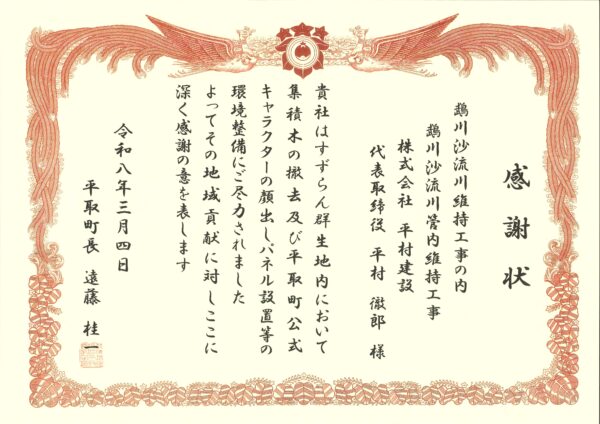 感謝状
鵡川沙流川維持工事の内
鵡川沙流川管内維持工事
株式会社 平村建設
代表取締役 平村 徹郎 様
貴社はすずらん群生地内において
集積木の撤去及び平取町公式
キャラクターの顔出しパネル設置等の
環境整備にご尽力されました
よってその地域貢献に対しここに
深く感謝の意を表します
令和八年三月四日
平取町長 遠藤 桂一